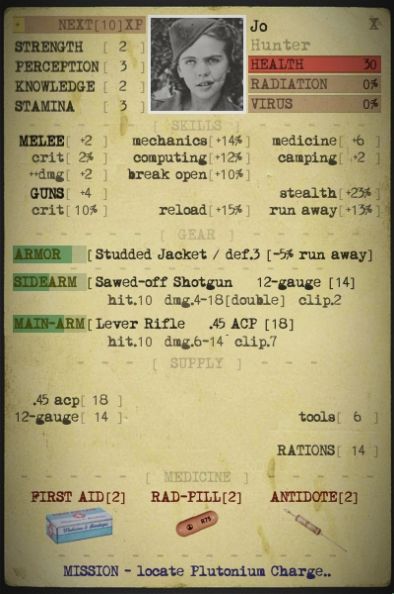 NEXT[10]XP
Jo
X
STRENGTH [ 2 ]
Hunter
PERCEPTION[ 3 ]
HEALTH 30
KNOWLEDGE [ 2 ]
RADIATION 0%
STAMINA [ 3 ]
VIRUS 0%
[ SKILLS ]
MELEE[ +2 ] mechanics[+14%] medicine[ +6 ]
crit[ 2% ] computing[+12%] camping[ +2 ]
++dmg[ +2 ] break open[+10%]
GUNS[ +4 ] stealth[+23%]
crit[ 10% ] reload[+15%] run away[+13%]
[ GEAR ]
ARMOR [Studded Jacket / def.3 [-5% run away]
SIDEARM [Sawed-off Shotgun 12-gauge [14]
hit.10 dmg.4-18[double] clip.2
MAIN-ARM[Lever Rifle .45 ACP [18]
hit.10 dmg.6-14 clip.7
[ SUPPLY ]
.45 acp[ 18 ]
12-gauge[ 14 ] tools[ 6 ]
RATIONS[ 14 ]
[ MEDICINE ]
FIRST AID[2] RAD-PILL[2] ANTIDOTE[2]
MISSION - locate Plutonium Charge..